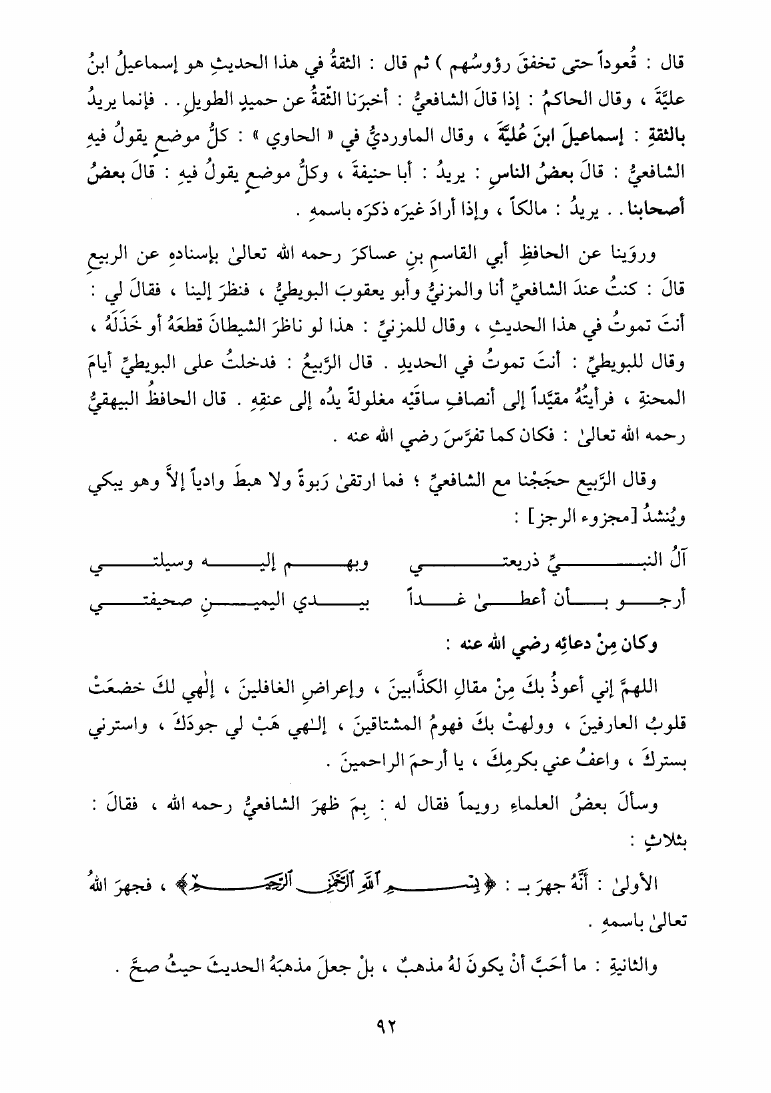 قال : قُعوداً حتى تخفقَ رؤوسُهم ) ثم قال : الثقةُ في هذا الحديثِ هو إسماعيلُ ابنُ
عليَّةَ ، وقال الحاكمُ : إذا قالَ الشافعيُّ : أخبرَنا الثّقةُ عن حميدٍ الطويلِ . . فإنما يريدُ
بالثقةِ : إسماعيلَ ابنَ عُليَّةَ ، وقال الماورديُّ في « الحاوي » : كلُّ موضعٍ يقولُ فيهِ
الشافعيُّ : قالَ بعضُ الناسِ : يريدُ : أبا حنيفةَ ، وكلُّ موضعٍ يقولُ فيهِ : قالَ بعضُ
أصحابنا . . يريدُ : مالكاً ، وإذا أرادَ غيرَه ذكرَه باسمهِ .
وروَينا عن الحافظِ أبي القاسمِ بنِ عساكرَ رحمه الله تعالىٰ بإسنادهِ عن الربيعِ
قالَ : كنتُ عندَ الشافعيِّ أنا والمزنيُّ وأبو يعقوبَ البويطيُّ ، فنظرَ إلينا ، فقالَ لي :
أنتَ تموتُ في هذا الحديثِ ، وقال للمزنيِّ : هذا لو ناظرَ الشيطانَ قطعَهُ أو خَذَلَهُ ،
وقال للبويطيِّ : أنتَ تموتُ في الحديدِ . قال الرَّبيعُ : فدخلتُ على البويطيِّ أيامَ
المحنةِ ، فرأيتُهُ مقيَّداً إلى أنصافِ ساقَيْه مغلولةً يدُه إلى عنقِهِ . قال الحافظُ البيهقيُّ
رحمه الله تعالىٰ : فكان كما تفرَّسَ رضي الله عنه .
وقال الرَّبيع حجَجْنا مع الشافعيِّ ؛ فما ارتقىٰ رَبوةً ولا هبطَ وادياً إلاَّ وهو يبكي
ويُنشدُ [مجزوء الرجز] :
آلُ النبـــيِّ ذريعتـــي وبهـــم إليـــه وسيلتـــي
أرجـــو بـــأن أعطـــىٰ غـــداً بيـــدي اليميـــنِ صحيفتـــي
وكان مِنْ دعائِه رضي الله عنه :
اللهمَّ إني أعوذُ بكَ مِنْ مقالِ الكذَّابينَ ، وإعراضِ الغافلينَ ، إلٰهي لكَ خضعَتْ
قلوبُ العارفينَ ، وولهتْ بكَ فهومُ المشتاقينَ ، إلـٰهي هَبْ لي جودَكَ ، واسترني
بستركَ ، واعفُ عني بكرمِكَ ، يا أرحمَ الراحمينَ .
وسألَ بعضُ العلماءِ رويماً فقال له : بِمَ ظهرَ الشافعيُّ رحمه الله ، فقالَ :
بثلاثٍ :
الأولىٰ : أنَّهُ جهرَ بـ : ﴿بِسْمِ ٱللَّهِ ٱلرَّحْمَٰنِ ٱلرَّحِيمِ﴾ ، فجهرَ اللهُ
تعالىٰ باسمهِ .
والثانيةِ : ما أحَبَّ أنْ يكونَ لهُ مذهبٌ ، بلْ جعلَ مذهبَهُ الحديثَ حيثُ صحَّ .
٩٢